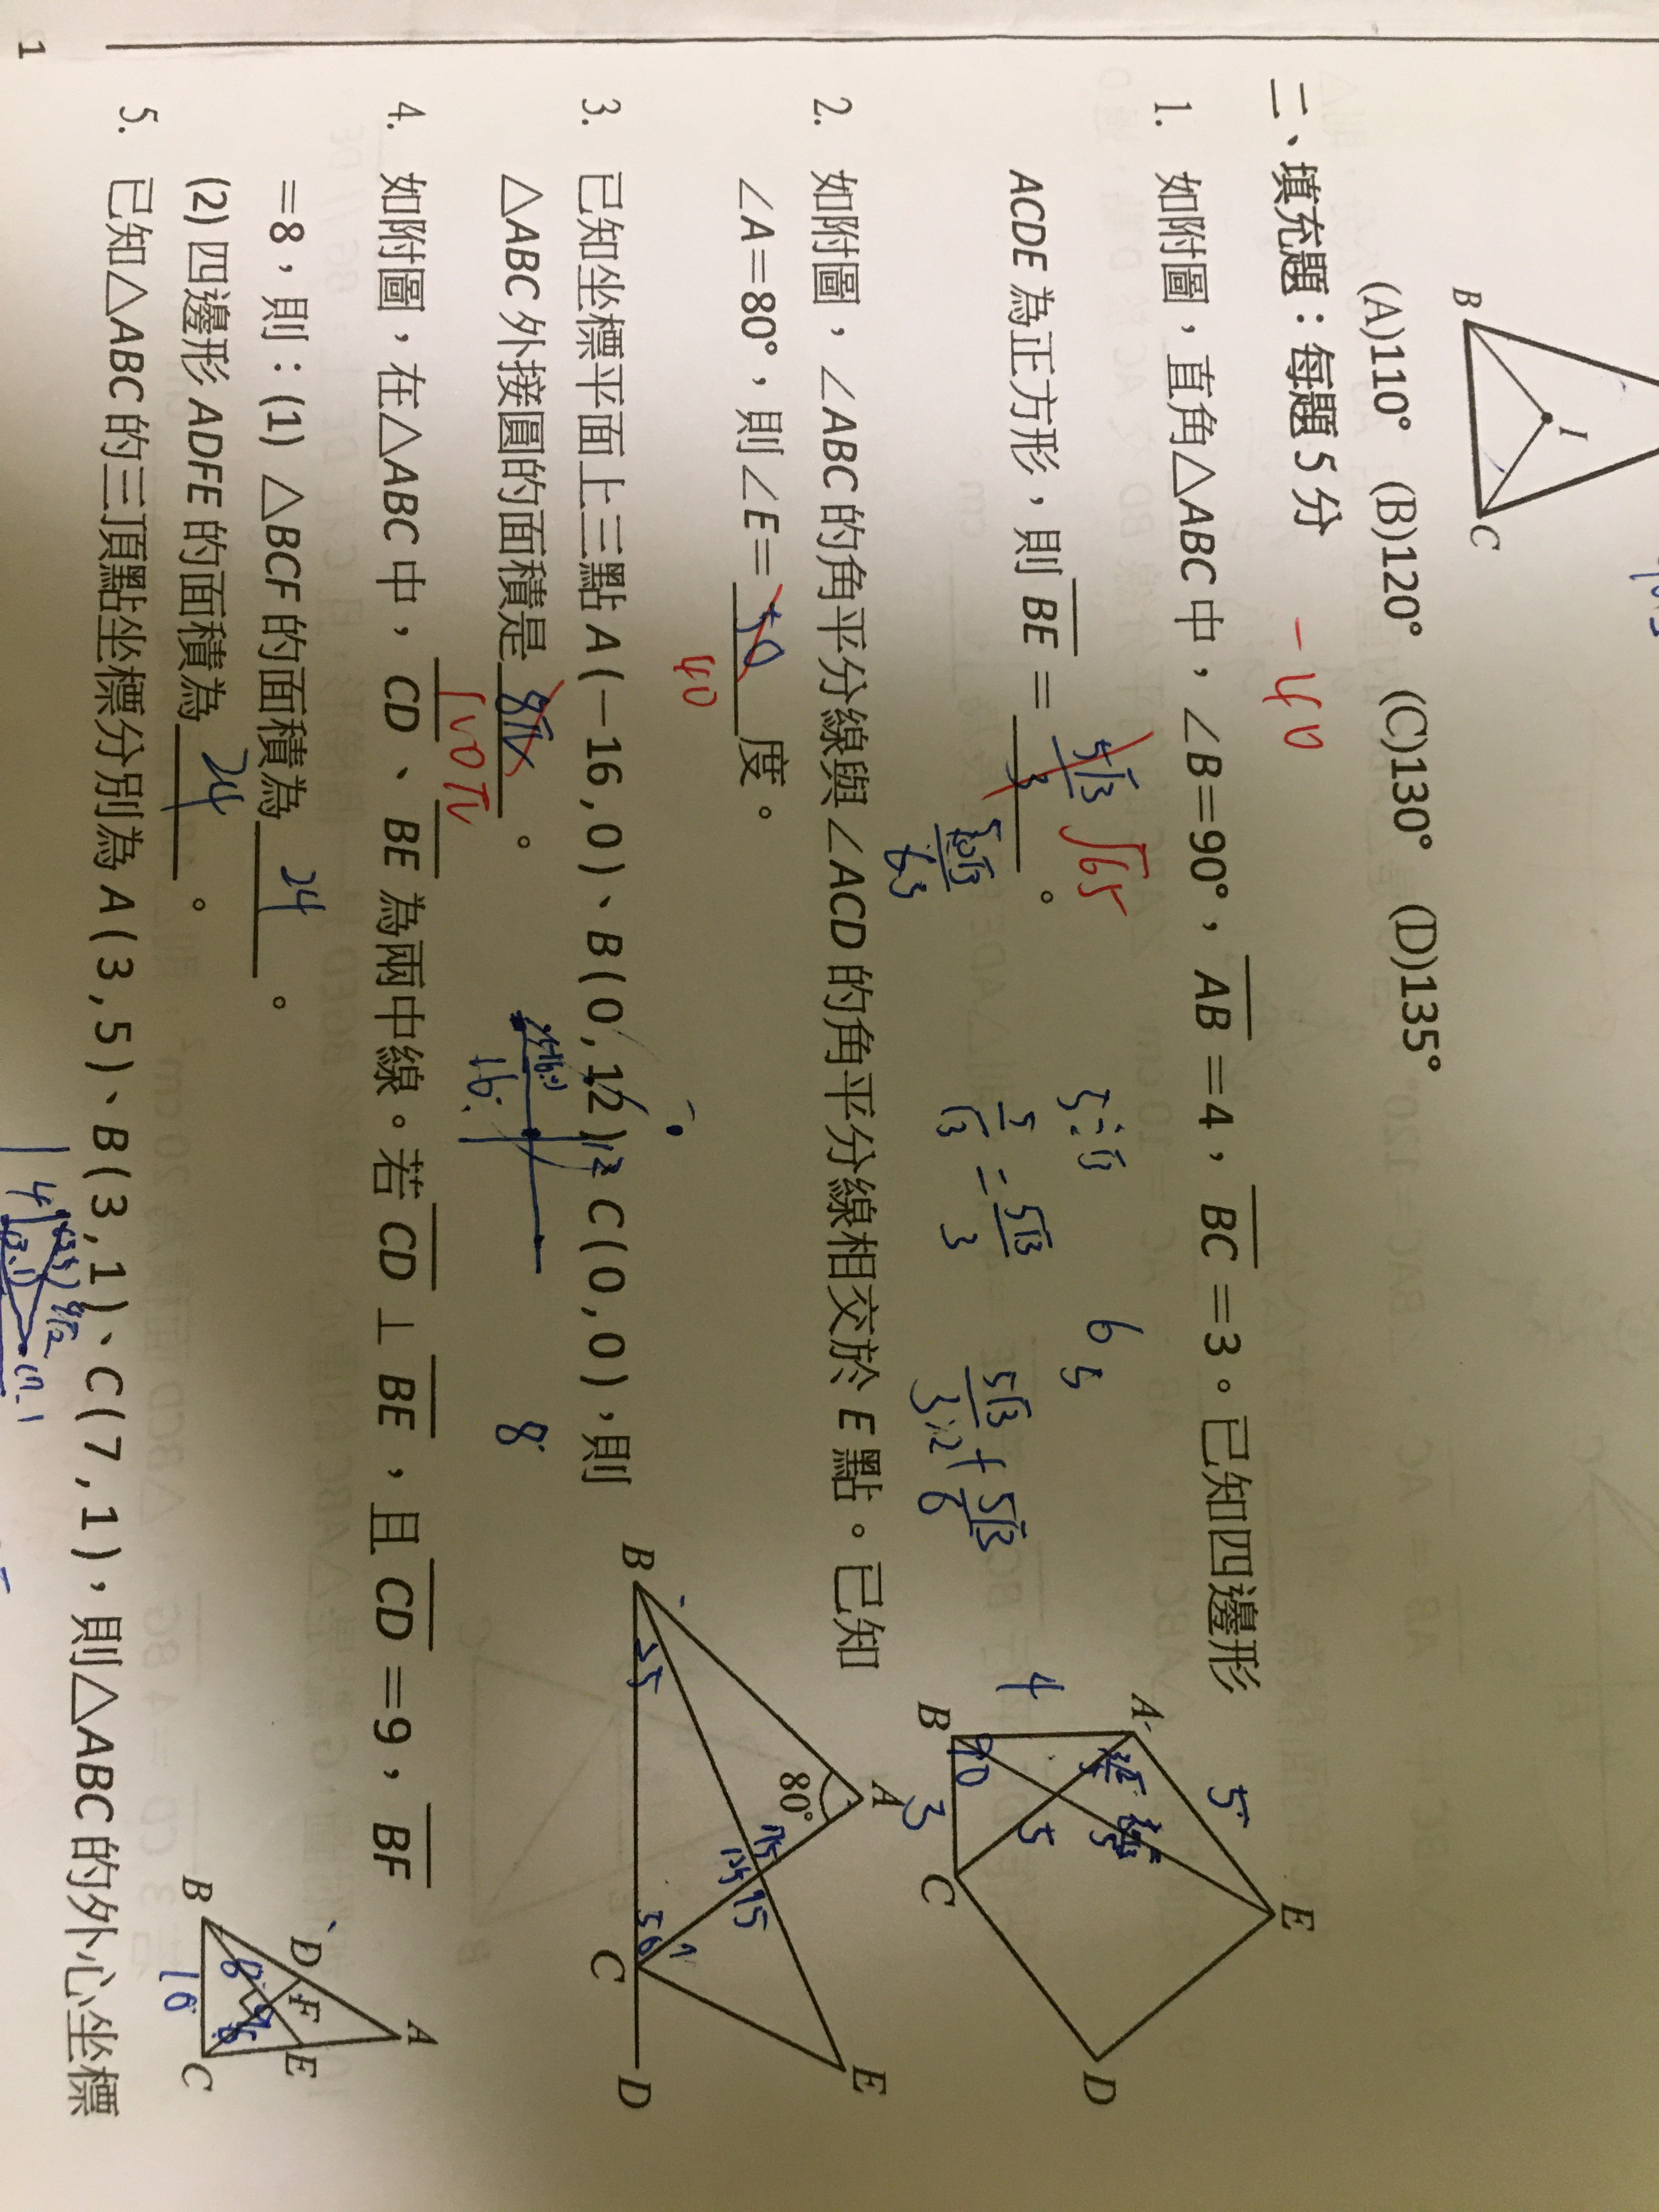 B
I
C
(A)110° (B)120° (C)130° (D)135°
二、填充題：每題 5 分
-40
1. 如附圖，直角△ABC 中，∠B＝90°，AB＝4，BC＝3。已知四邊形
ACDE 為正方形，則 BE＝ 5√3/3 。
√65
A
B
C
D
E
4
3
5
5
90
2. 如附圖，∠ABC 的角平分線與∠ACD 的角平分線相交於 E 點。已知
∠A＝80°，則∠E＝ 50 度。
40
A
B
C
D
E
80°
25
3. 已知坐標平面上三點 A(－16,0)、B(0,12)、C(0,0)，則
△ABC 外接圓的面積是 8π 。
100π
16
8
4. 如附圖，在△ABC 中，CD、BE 為兩中線。若 CD⊥BE，且 CD＝9，BF
＝8，則：(1) △BCF 的面積為 24 。
(2) 四邊形 ADFE 的面積為 24 。
A
B
C
D
E
F
10
5. 已知△ABC 的三頂點坐標分別為 A(3,5)、B(3,1)、C(7,1)，則△ABC 的外心坐標
4
1